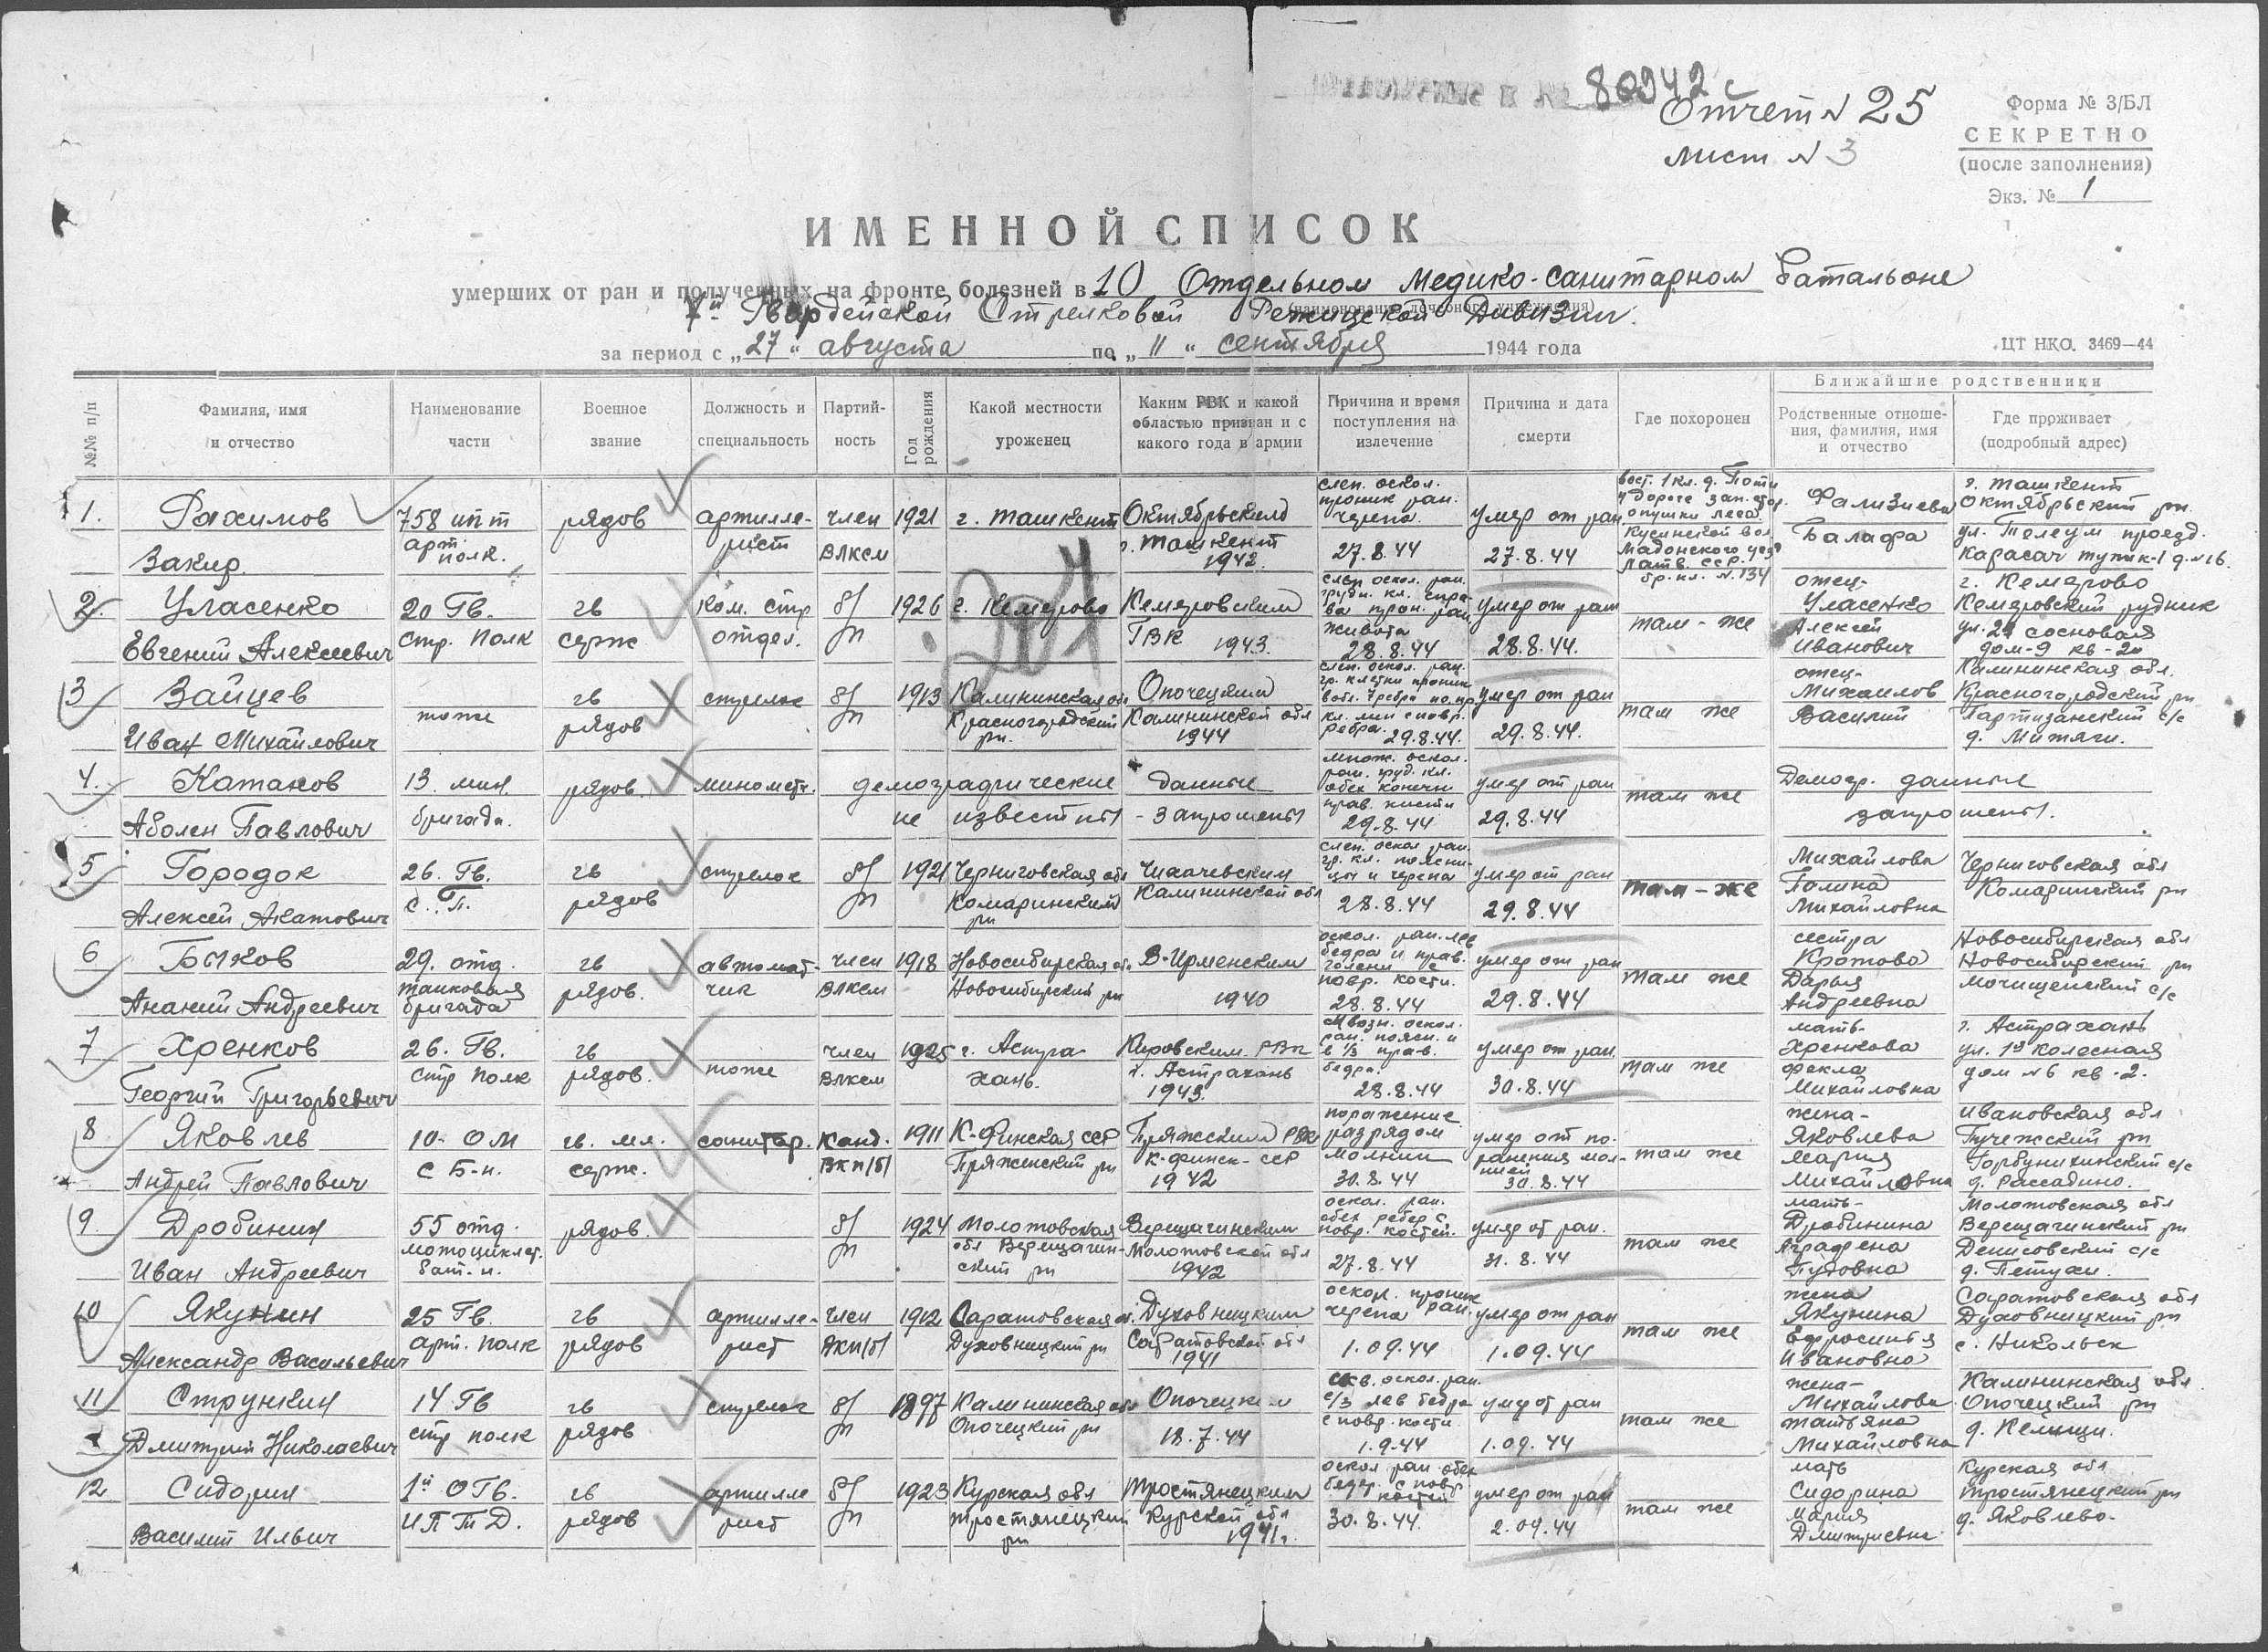 80942с
Отчет № 25
Лист № 3
Форма № 3/БЛ
СЕКРЕТНО
(после заполнения)
Экз. № 1
ИМЕННОЙ СПИСОК
умерших от ран и полученных на фронте болезней в 10 Отдельном медико-санитарном батальоне
(наименование лечебного учреждения)
7й Гвардейской Стрелковой Режицкой Дивизии.
за период с „27“ августа по „11“ сентября 1944 года
ЦТ НКО. 3469—44
№№ п/п
Фамилия, имя и отчество
Наименование части
Военное звание
Должность и специальность
Партий-ность
Год рождения
Какой местности уроженец
Каким РВК и какой областью призван и с какого года в армии
Причина и время поступления на излечение
Причина и дата смерти
Где похоронен
Ближайшие родственники
Родственные отноше-ния, фамилия, имя и отчество
Где проживает (подробный адрес)
207
1. Рахимов Закир
758 ипт арт. полк.
рядов
артилле-рист
член ВЛКСМ
1921
г. Ташкент
Октябрьским г. Ташкент 1942
слеп. оскол. проник ран. черепа 27.8.44
умер от ран 27.8.44
вост. 1 кл. д. у дороге зап. опушки леса Мадонского Латв. ССР. бр. кл. № 134
Фализиева Балафа
г. Ташкент Октябрьский рн. ул. проезд. Карасач тупик-1 д. №16
2. Уласенко Евгений Алексеевич
20 Гв. стр. полк
гв серж
ком. стр отдел.
б/п
1926
г. Кемерово
Кемеровским ГВК 1943.
слеп оскол. ран. грудн. кл. спра-ва прон. ран живота 28.8.44
умер от ран 28.8.44.
там-же
отец- Уласенко Алексей Иванович
г. Кемерово Кемеровский рудник ул. 2я сосновая дом-9 кв-2а
3 Зайцев Иван Михайлович
тоже
гв рядов
стрелок
б/п
1913
Калининская обл Красногородский рн.
Опочецким Калининской обл 1944
слеп. оскол. ран. гр. клетки проник в обл. 7 ребра кл. лин с повр. ребра. 29.8.44.
умер от ран 29.8.44.
там же
отец- Михайлов Василий
Калининская обл. Красногородский рн Партизанский с/с д. Митяги.
4. Катанов Аболен Павлович
13. мин. бригада.
рядов.
минометч.
демографические данные
не известны - запрошены
множ. оскол. ран. груд. кл. обех конечн прав. кисти 29.8.44
умер от ран 29.8.44
там же
Демогр. данные запрошены.
5 Городок Алексей Акатович
26. Гв. с.п.
гв рядов
стрелок
б/п
1921
Черниговская обл Комаринский рн
Чихачевским Калининской обл
слеп. оскол ран. гр. кл. поясни-цы и черепа 28.8.44
умер от ран 29.8.44
там-же
Михайлова Полина Михайловна
Черниговская обл Комаринский рн
6 Быков Ананий Андреевич
29. отд. танковая бригада
гв рядов.
автомат-чик
член ВЛКСМ
1918
Новосибирская об. Новосибирский рн
В-Ирменским 1940
оскол. ран. лев бедра и прав. голени с повр. кости. 28.8.44
умер от ран 29.8.44
там же
сестра Кротова Дарья Андреевна
Новосибирская обл Новосибирский рн Мочищенский с/с
7 Хренков Георгий Григорьевич
26. Гв. стр полк
гв рядов.
тоже
член ВЛКСМ
1925
г. Астра-хань.
Кировским РВК г. Астрахань 1943.
Мвозн. оскол. ран. поясн. и в 1/3 прав. бедра. 28.8.44
умер от ран 30.8.44
там же
мать- Хренкова Фекла Михайловна
г. Астрахань ул. 1я Колесная дом №6 кв.2.
8 Яковлев Андрей Павлович
10. ОМ С Б-н.
гв. мл. серж.
санитар.
канд. ВКП/б/
1911
К-Финская ССР Пряженский рн
Пряжским РВК К-Финск- ССР 1942
поражение разрядом молнии 30.8.44
умер от по-ранения мол-нией 30.8.44
там же
жена- Яковлева Мария Михайловна
Ивановская обл Пучежский рн Горбунихинский с/с д. Рассадино.
9. Дробинин Иван Андреевич
55 отд. мотоциклет. бат.н.
рядов.
б/п
1924
Молотовская обл Верещагин-ский рн
Верещагинским Молотовской обл 1942
оскол. ран. обех ребер с повр. костей. 27.8.44
умер от ран. 31.8.44
там же
мать- Дробинина Аграфена Пудовна
Молотовская обл Верещагинский рн Денисовский с/с д. Петухи.
10 Якунин Александр Васильевич
25 Гв. арт. полк
гв рядов
артилле-рист
член ВКП/б/
1912
Саратовская о. Духовницкий рн
Духовницким Саратовской обл 1941
оскол. проник ран. черепа 1.09.44
умер от ран 1.09.44
там же
жена Якунина Ефросинья Ивановна
Саратовская обл Духовницкий рн с. Никольск
11 Стрункин Дмитрий Николаевич
14 Гв стр полк
гв рядов
стрелок
б/п
1897
Калининская обл Опочецкий рн
Опочецким 18.7.44
скв. оскол. ран. с/з лев бедра с повр. кости 1.9.44
умер от ран 1.09.44
там же
жена- Михайлова Татьяна Михайловна
Калининская обл Опочецкий рн
12 Сидорин Василий Ильич
1й ОГв. ИПТД.
гв рядов
артилле рист
б/п
1923
Курская обл Тростянецкий рн
Тростянецким Курской обл 1941г.
оскол ран обех бедер с повр костей 30.8.44.
умер от ран 2.09.44
там же
мать Сидорина Мария Дмитриевна
Курская обл Тростянецкий рн д. Яковлево.